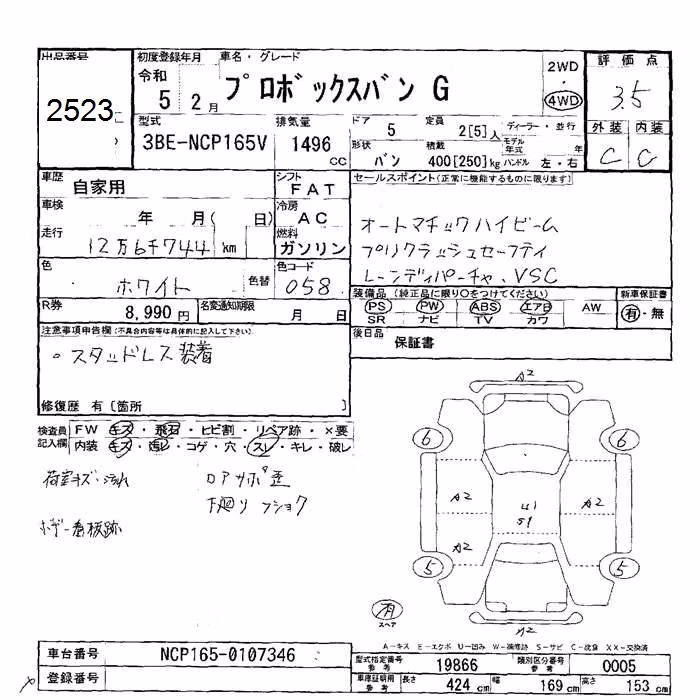 出品番号 初度登録年月 車名・グレード 2WD 評価点
2523 令和 5 2月 プロボックスバン G ・ 4WD 3.5
型式 排気量 ドア 5 定員 2[5]人 ディーラー・並行 外装 内装
3BE-NCP165V 1496 cc 形状 バン 積載 400[250]kg モデル年式 年 ハンドル 左・右 C C
車歴 自家用 シフト FAT セールスポイント(正常に機能するものに限ります)
車検 年 月( 日) 冷房 AC オートマチックハイビーム
走行 12万6千744km 燃料 ガソリン プリクラッシュセーフティ
色 ホワイト 色替 色コード 058 レーンディパーチャ、VSC
R券 8,990円 名変通知期限 月 日 装備品(純正品に限り○をつけてください) 新車保証書
PS PW ABS エアB AW 有・無
SR ナビ TV カワ
注意事項申告欄(不具合内容等は具体的に記入して下さい) 後日品 保証書
。スタッドレス装着
修復歴 有〔箇所 〕
検査員記入欄 FW キズ・飛石・ヒビ割・リペア跡・×要
内装 キズ・汚レ・コゲ・穴・スレ・キレ・破レ
荷室キズ・汚れ ロアサポ歪
下廻りフショク
ボデー看板跡
A2
6 6
A2 U1 A2
S1
A2
5 5
有
スペア
A2
A-キズ E-エクボ U-凹み W-補修跡 S-サビ C-腐食 XX-交換済
車台番号 NCP165-0107346 型式指定番号 参考 19866 類別区分番号 参考 0005
登録番号 車庫証明用 参考 長さ 424 cm 幅 169 cm 高さ 153 cm